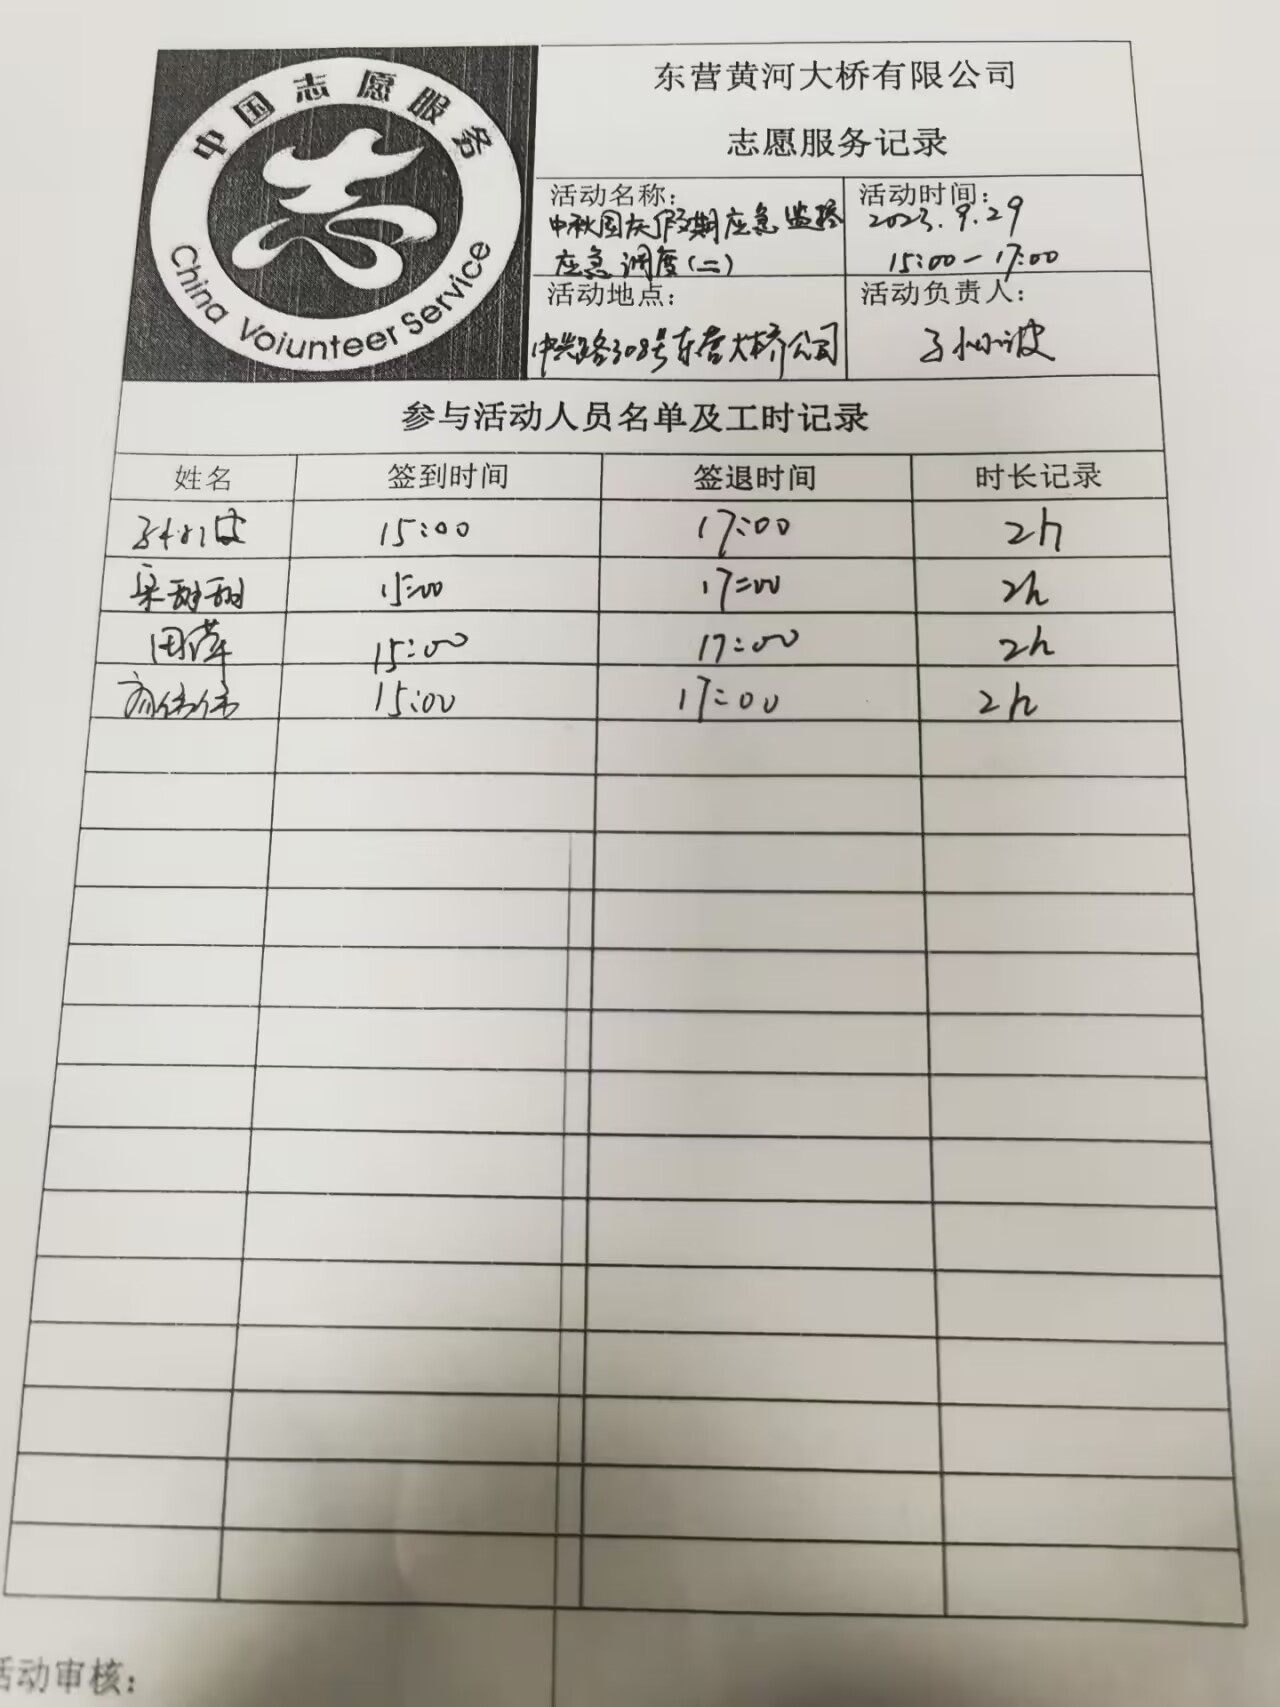 中国志愿服务
China Voiunteer Service
东营黄河大桥有限公司
志愿服务记录
活动名称：
中秋国庆假期应急监控
应急调度(二)
活动时间：
2023.9.29
15:00-17:00
活动地点：
中兴路308号东营大桥公司
活动负责人：
参与活动人员名单及工时记录
姓名 签到时间 签退时间 时长记录
15:00 17:00 2h
梁甜甜 15:00 17:00 2h
田萍 15:00 17:00 2h
伟伟 15:00 17:00 2h
活动审核：